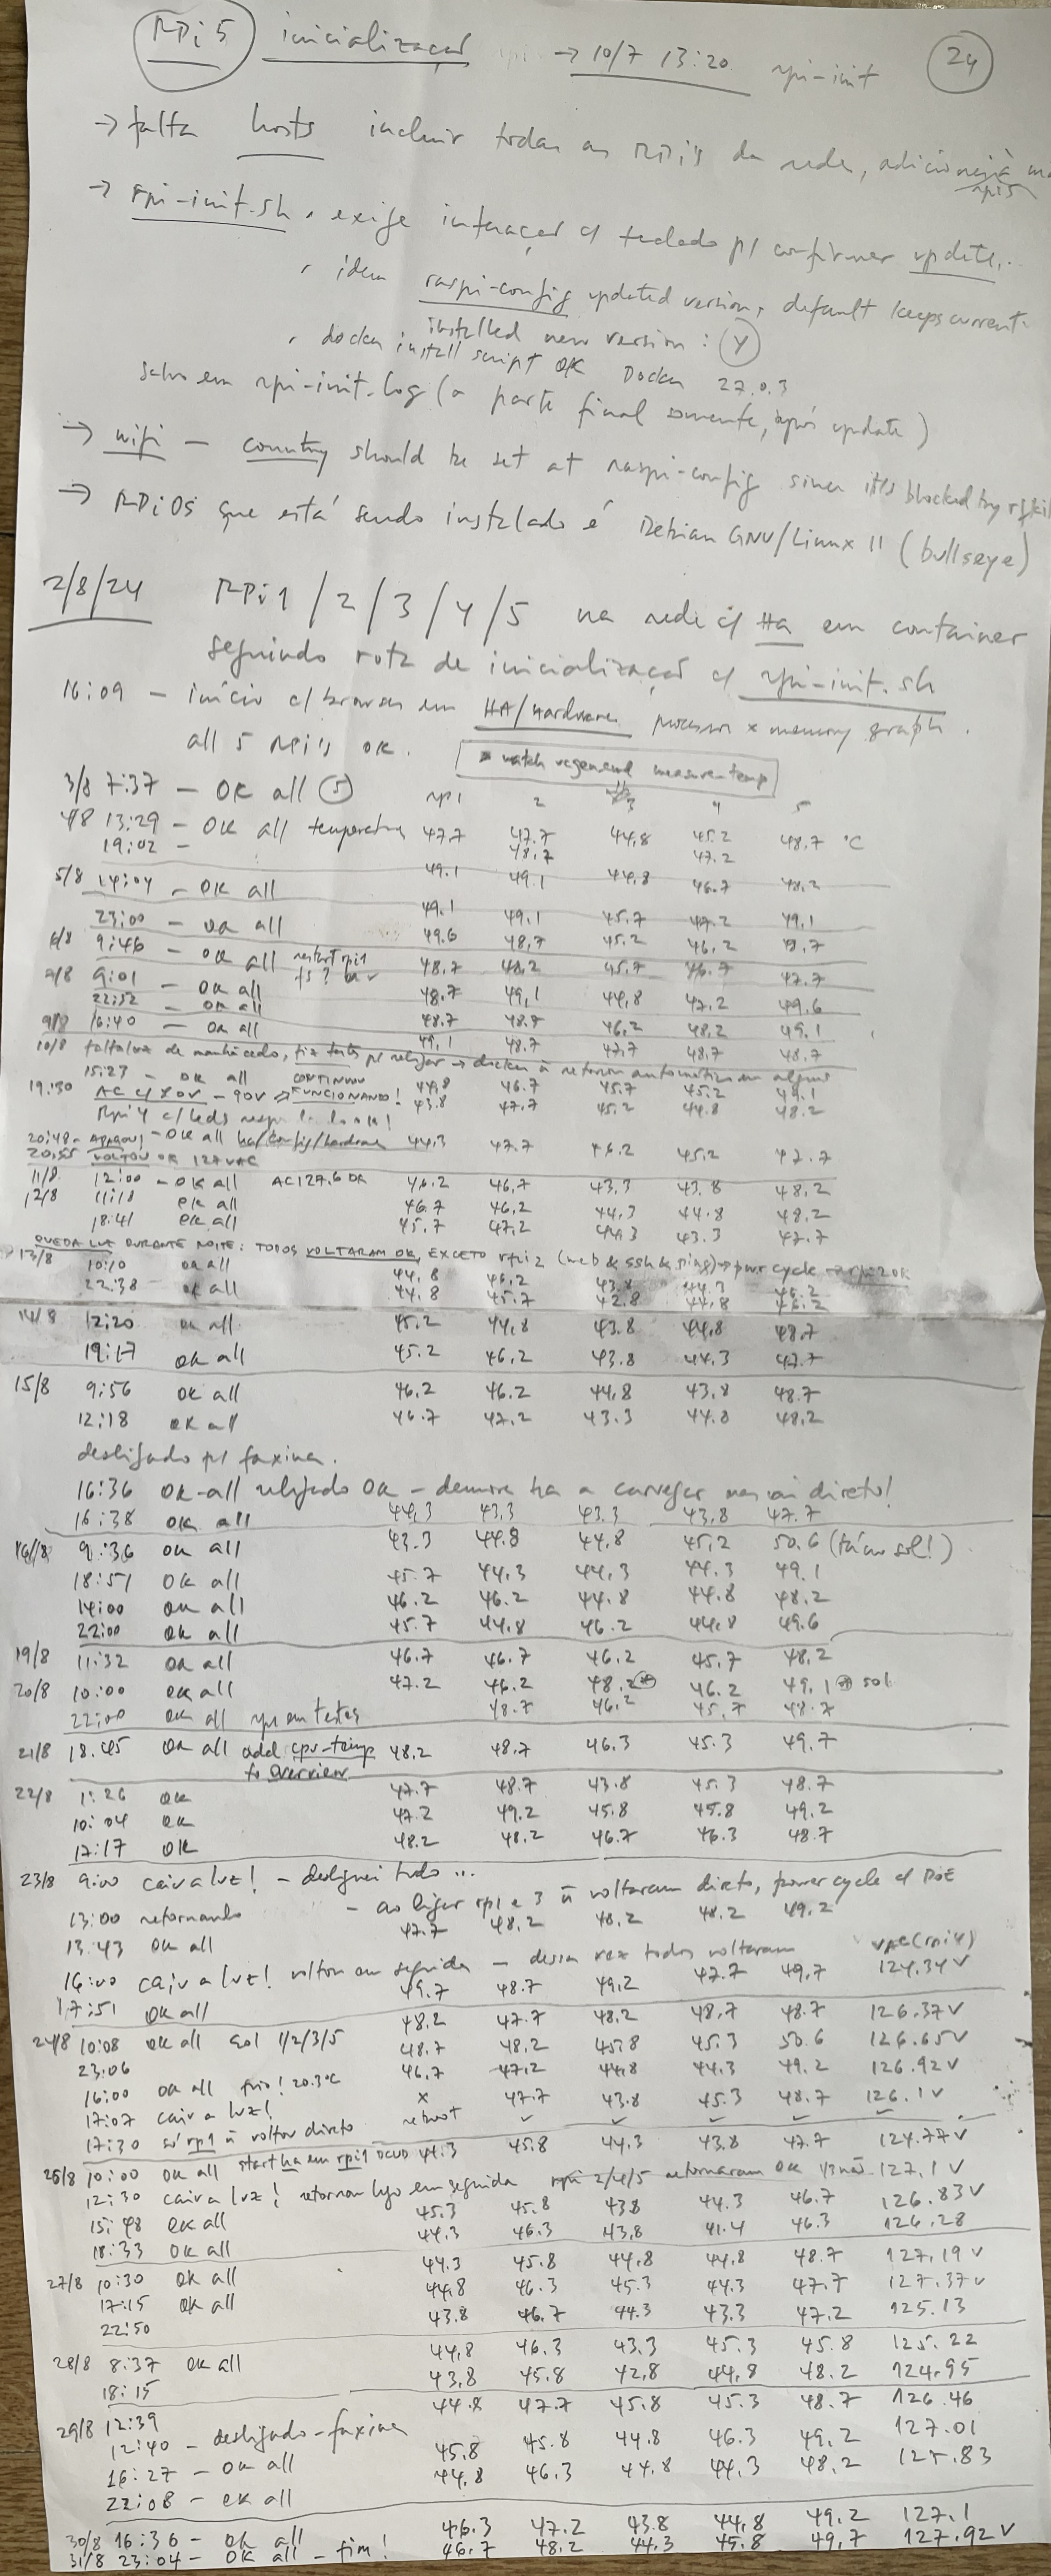 RPi 5 inicialização → 10/7 13:20 rpi-init 24
→ falta hosts incluir todas as RPi's da rede, adicionei à
rpi5
→ rpi-init.sh, exige interação c/ teclado p/ confirmar update,..
, idem raspi-config updated version, default keeps current.
installed new version : Y
, docker install script OK Docker 27.0.3
salvo em rpi-init.log (a parte final somente, após update)
→ wifi - country should be set at raspi-config since it's blocked by rfkill
→ RPiOS que está sendo instalado é Debian GNU/Linux 11 (bullseye)
2/8/24 RPi 1/2/3/4/5 na rede c/ HA em container
seguindo rota de inicialização c/ rpi-init.sh
16:09 - início c/ browser em HA/Hardware processor x memory graph.
all 5 RPi's OK.
watch vcgencmd measure-temp
3/8 7:37 - OK all 5 rpi1 2 3 4 5
4/8 13:29 - OK all temperatura 47.7 47.7 44.8 45.2 48.7 °C
19:02 - 48.7 47.2
49.1 49.1 44.8 46.7 48.2
5/8 14:04 - OK all
49.1 49.1 45.7 47.2 49.1
23:00 - OK all 49.6 48.7 45.2 46.2
6/8 9:46 - OK all restart rpi1 48.7 48.2 45.7 46.7 47.7
7/8 9:01 - OK all 48.7 49.1 44.8 47.2 49.6
22:52 - OK all 48.7 48.7 46.2 48.2 49.1
9/8 16:40 - OK all 49.1 48.7 47.7 48.7 48.7
10/8 falta luz de manhã cedo, fiz testes p/ religar → docker ñ retorna automático em alguns
15:27 - OK all 44.8 46.7 45.7 45.2 49.1
CONTINUOU
19:30 AC c/ 70V - 90V → FUNCIONANDO! 43.8 47.7 45.2 44.8 48.2
Rpi 4 c/ leds
20:48 - APAGOU - OK all ha/config/hardware 44.3 47.7 46.2 45.2 47.7
20:55 VOLTOU OK 127VAC
11/8 12:00 - OK all AC127.6 OK 46.2 46.7 43.3 43.8 48.2
12/8 11:18 OK all 46.7 46.2 44.3 44.8 48.2
18:41 OK all 45.7 47.2 44.3 43.3 47.7
QUEDA LUZ DURANTE NOITE: TODOS VOLTARAM OK, EXCETO rpi2 (web & ssh & ping) → pwr cycle → rpi2 OK
13/8 10:10 OK all 44.8 46.2 43.8 44.3 46.2
22:38 OK all 44.8 45.7 42.8 44.8
14/8 12:20 OK all 45.2 44.8 43.8 44.8 48.7
19:17 OK all 45.2 46.2 43.8 44.3 47.7
15/8 9:56 OK all 46.2 46.2 44.8 43.8 48.7
12:18 OK all 46.7 47.2 43.3 44.8 48.2
desligado p/ faxina.
16:36 OK-all religado OK - demora ha a carregar mas vai direto!
16:38 OK all 44.3 43.3 43.3 43.8 47.7
16/8 9:36 OK all 43.3 44.8 44.8 45.2 50.6 (tá no sol!)
18:51 OK all 45.7 44.3 44.3 44.3 49.1
14:00 OK all 46.2 46.2 44.8 44.8 48.2
22:00 OK all 45.7 44.8 46.2 44.8 49.6
19/8 11:32 OK all 46.7 46.7 46.2 45.7 48.2
20/8 10:00 OK all 47.2 46.2 48.2 46.2 49.1 sol
22:00 OK all rpi1 em testes 48.7 46.2 45.7 48.7
21/8 18:45 OK all add cpu-temp 48.2 48.7 46.3 45.3 49.7
to overview
22/8 1:26 OK 47.7 48.7 43.8 45.3 48.7
10:04 OK 47.2 49.2 45.8 45.8 49.2
17:17 OK 48.2 48.2 46.7 46.3 48.7
23/8 9:00 caiu a luz! - desliguei tudo ...
- ao ligar rpi1 e 3 ñ voltaram direto, power cycle c/ PoE
13:00 retornando
13:43 OK all 47.7 48.2 48.2 48.2 49.2
16:00 caiu a luz! voltou em seguida - dessa vez todos voltaram VAC(rpi4)
17:51 OK all 49.7 48.7 49.2 47.7 49.7 124.34V
48.2 47.7 48.2 48.7 48.7 126.37V
24/8 10:08 OK all sol 1/2/3/5 48.7 48.2 45.8 45.3 50.6 126.65V
23:06 46.7 47.2 44.8 44.3 49.2 126.92V
16:00 OK all frio! 20.3°C x 47.7 43.8 45.3 48.7 126.1V
17:07 caiu a luz! reboot ✓ ✓ ✓ ✓ ✓
17:30 só rp1 ñ voltou direto
start ha em rpi1 44.3 45.8 44.3 43.8 47.7 124.77V
25/8 10:00 OK all
12:30 caiu a luz! retornou logo em seguida rpi 2/4/5 retornaram OK 1/3 não 127.1V
15:48 OK all 45.3 45.8 43.8 44.3 46.7 126.83V
18:33 OK all 44.3 46.3 43.8 41.4 46.3 126.28
44.3 45.8 44.8 44.8 48.7 127.19V
27/8 10:30 OK all 44.8 46.3 45.3 44.3 47.7 127.37V
17:15 OK all 43.8 46.7 44.3 43.3 47.2 125.13
22:50
44.8 46.3 43.3 45.3 45.8 125.22
28/8 8:37 OK all 43.8 45.8 42.8 44.8 48.2 124.95
18:15
44.8 47.7 45.8 45.3 48.7 126.46
29/8 12:39
12:40 - desligado - faxina 45.8 45.8 44.8 46.3 49.2 127.01
16:27 - OK all 44.8 46.3 44.8 44.3 48.2 127.83
22:08 - OK all
30/8 16:36 - OK all 46.3 47.2 43.8 44.8 49.2 127.1
31/8 23:04 - OK all - fim! 46.7 48.2 44.3 45.8 49.7 127.92V